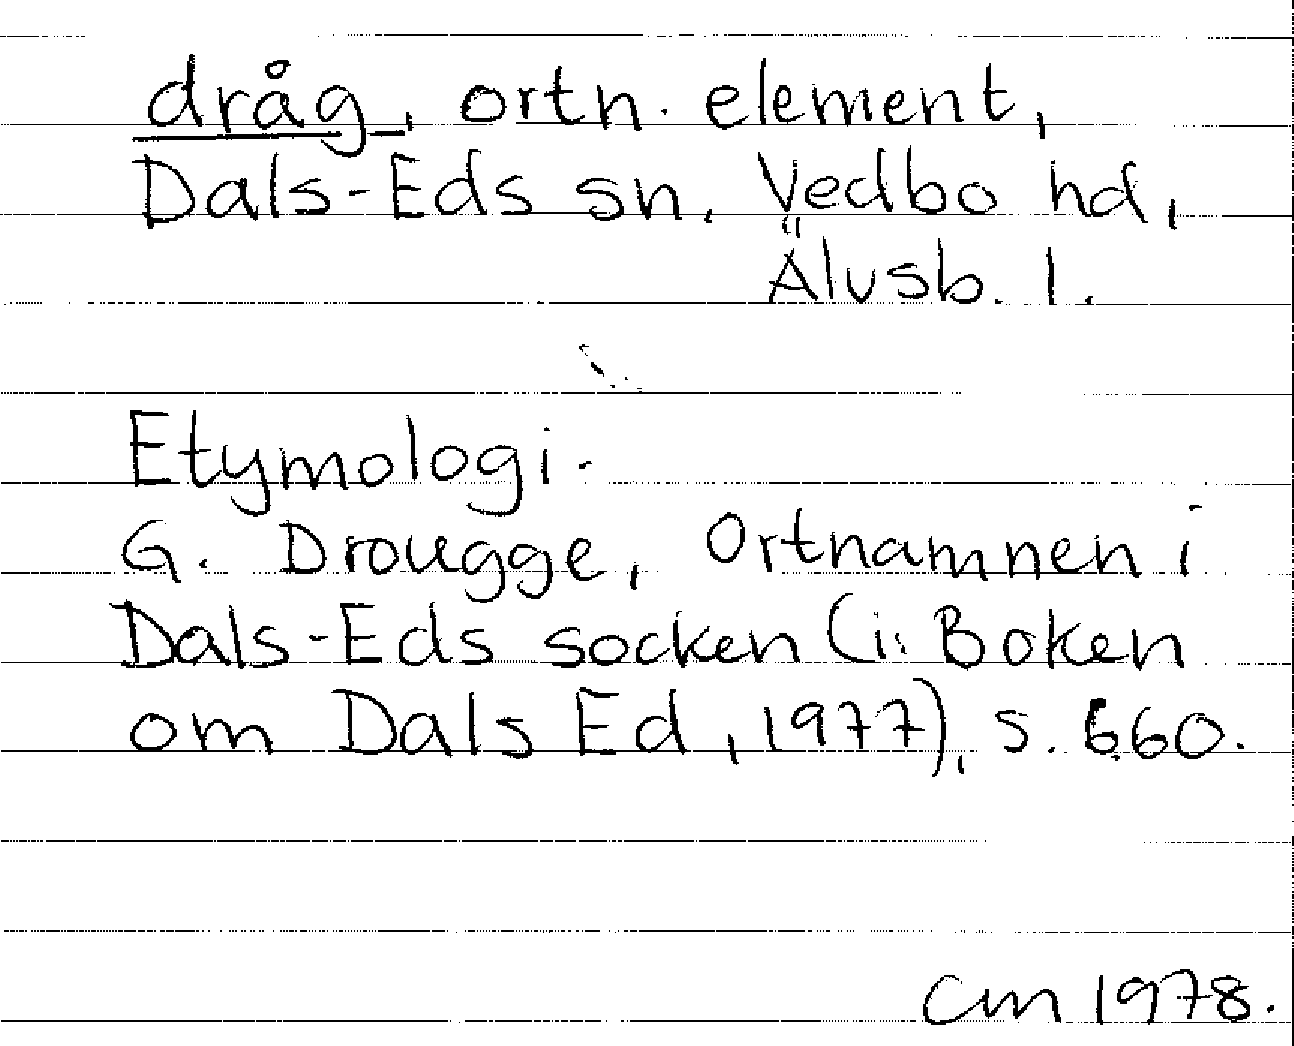 dråg, ortn. element,
Dals-Eds sn, Vedbo hd,
Älvsb. l.
Etymologi.
G. Drougge, Ortnamnen i
Dals-Eds socken (i: Boken
om Dals Ed, 1977), s. 660.
CM 1978.